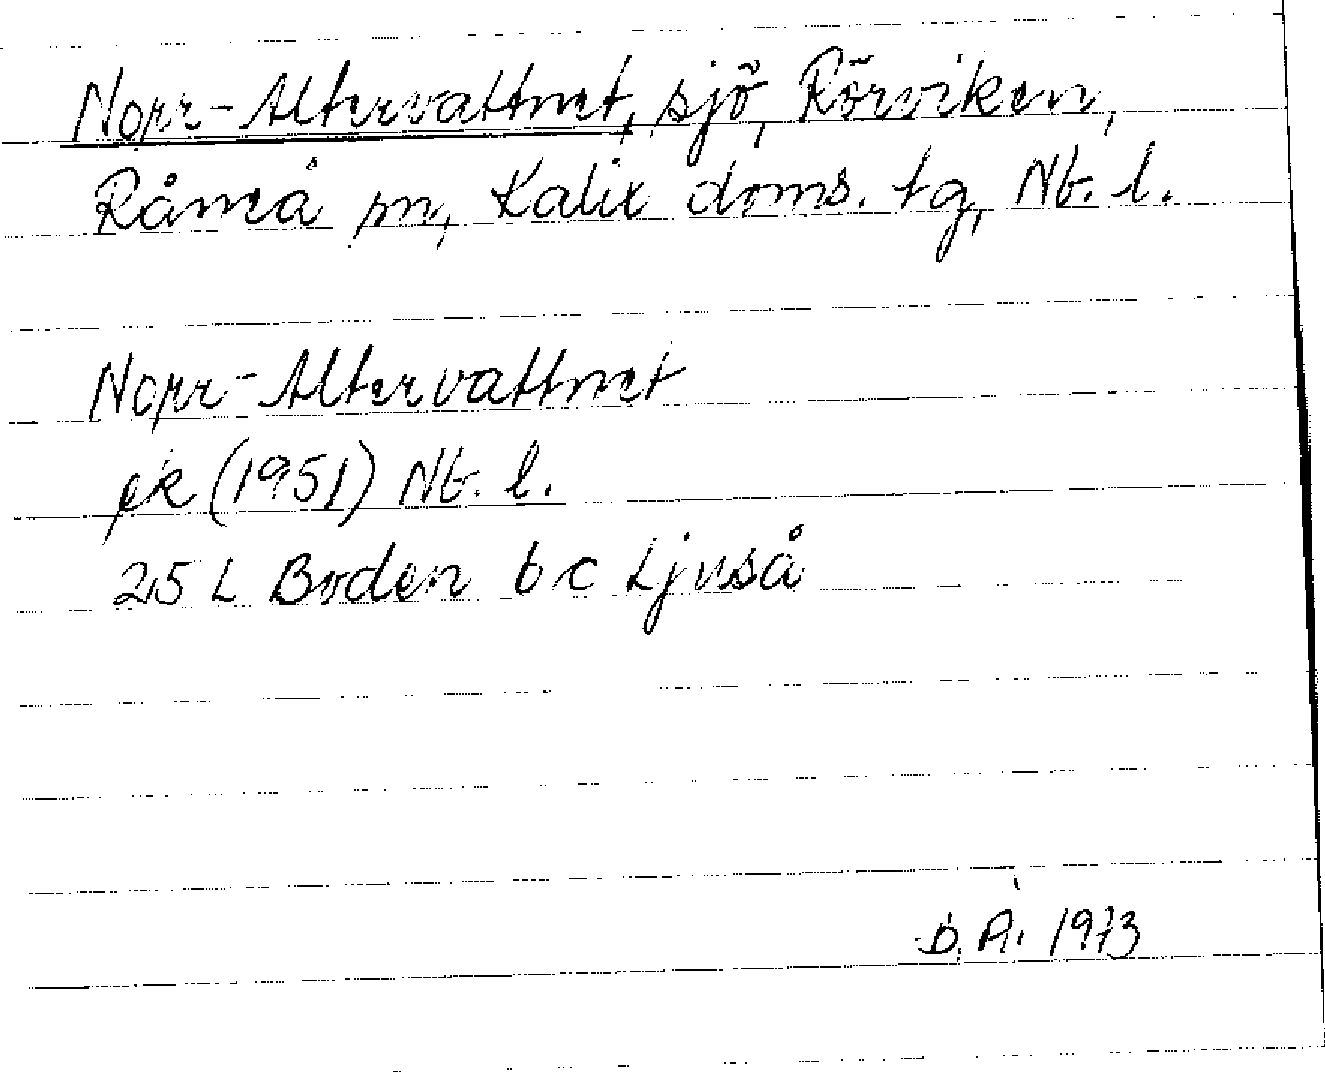 Norr-Altervattnet, sjö, Rörviken,
Råneå sn, Kalix doms. tg, Nb. l.
Norr-Altervattnet
ek (1951) Nb. l.
25 L Boden 6 c Ljuså
D. A. 1973